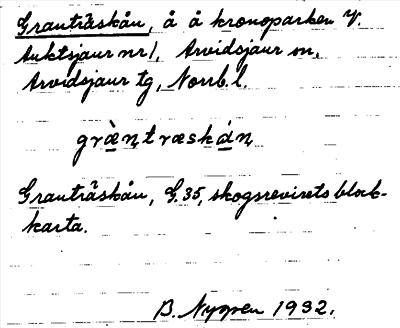 Granträskån, å å kronoparken V.
Auktsjaur nr 1, Arvidsjaur sn,
Arvidsjaur tg, Norrb. l.
grὰntræskån
Granträskån, G. 35, skogsrevirets block-
karta.
B. Nygren 1932.